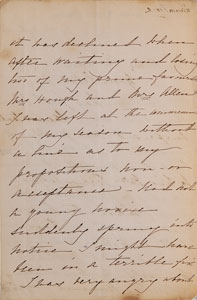 it has declined when
after waiting and losing
two of my prime favou
Mrs Hough and Mrs Allen
I was left at the
of my season without
a line as to my
propositions non-
acceptance. Had not
a young novice
suddenly sprung into
notice I might have
been in a terrible fix
I was very angry about